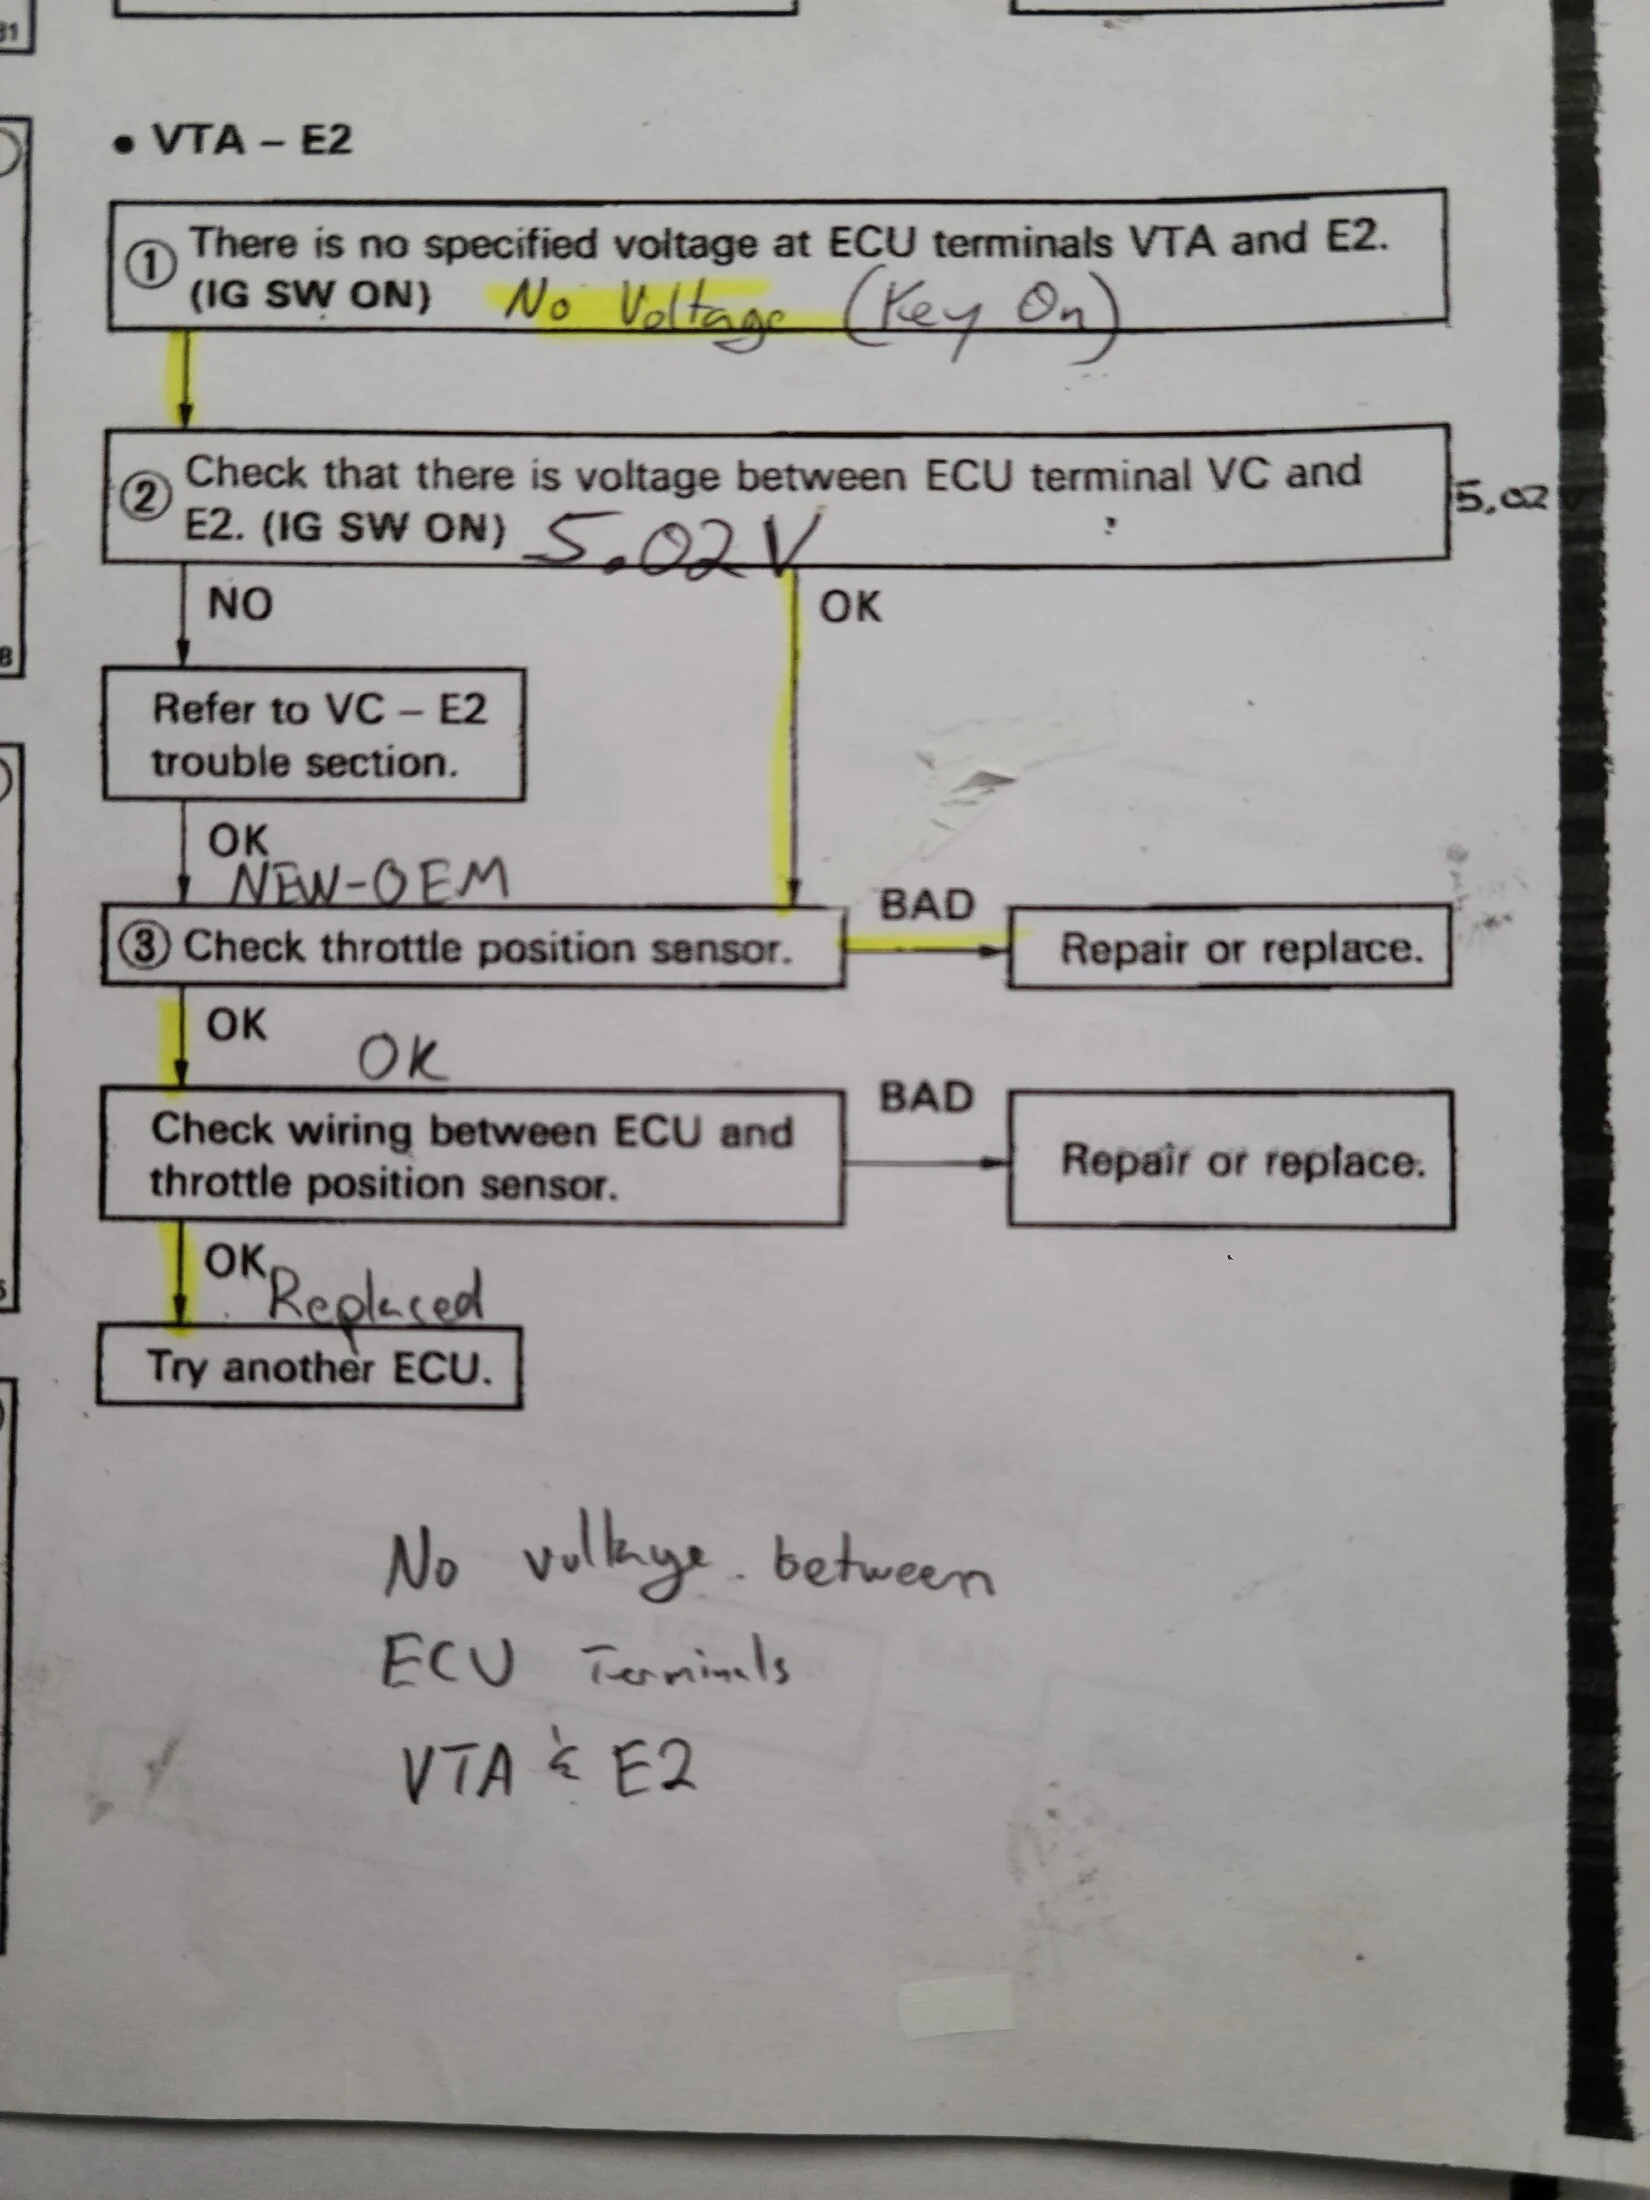 31
• VTA – E2
① There is no specified voltage at ECU terminals VTA and E2.
(IG SW ON) No Voltage (Key On)
② Check that there is voltage between ECU terminal VC and
E2. (IG SW ON) 5.02 V
5.02
NO
OK
8
Refer to VC – E2
trouble section.
OK
NEW-OEM
BAD
③ Check throttle position sensor.
Repair or replace.
OK
OK
BAD
Check wiring between ECU and
throttle position sensor.
Repair or replace.
OK
Replaced
Try another ECU.
No voltage between
ECU Terminals
VTA & E2